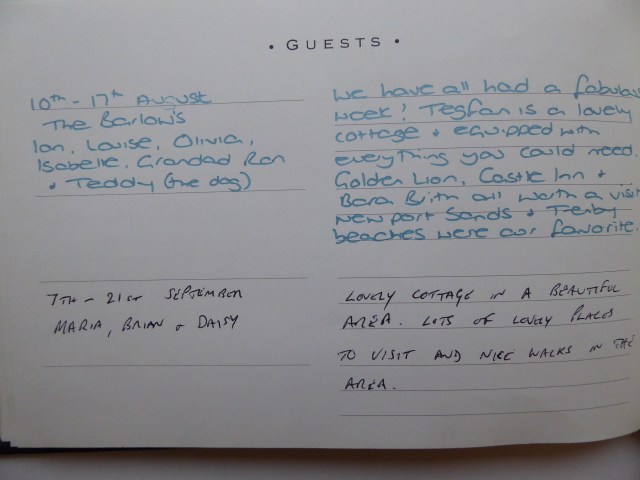 • GUESTS •
10th - 17th August
The Barlow's
Ian, Louise, Olivia,
Isabelle, Grandad Ron
+ Teddy (the dog)
We have all had a fabulous
week! Tegfan is a lovely
cottage + equipped with
everything you could need.
Golden Lion, Castle Inn +
Bara Brith all worth a visit
Newport Sands + Tenby
beaches were our favorite.
7TH - 21ST SEPTEMBER
MARIA, BRIAN + DAISY
LOVELY COTTAGE IN A BEAUTIFUL
AREA. LOTS OF LOVELY PLACES
TO VISIT AND NICE WALKS IN THE
AREA.